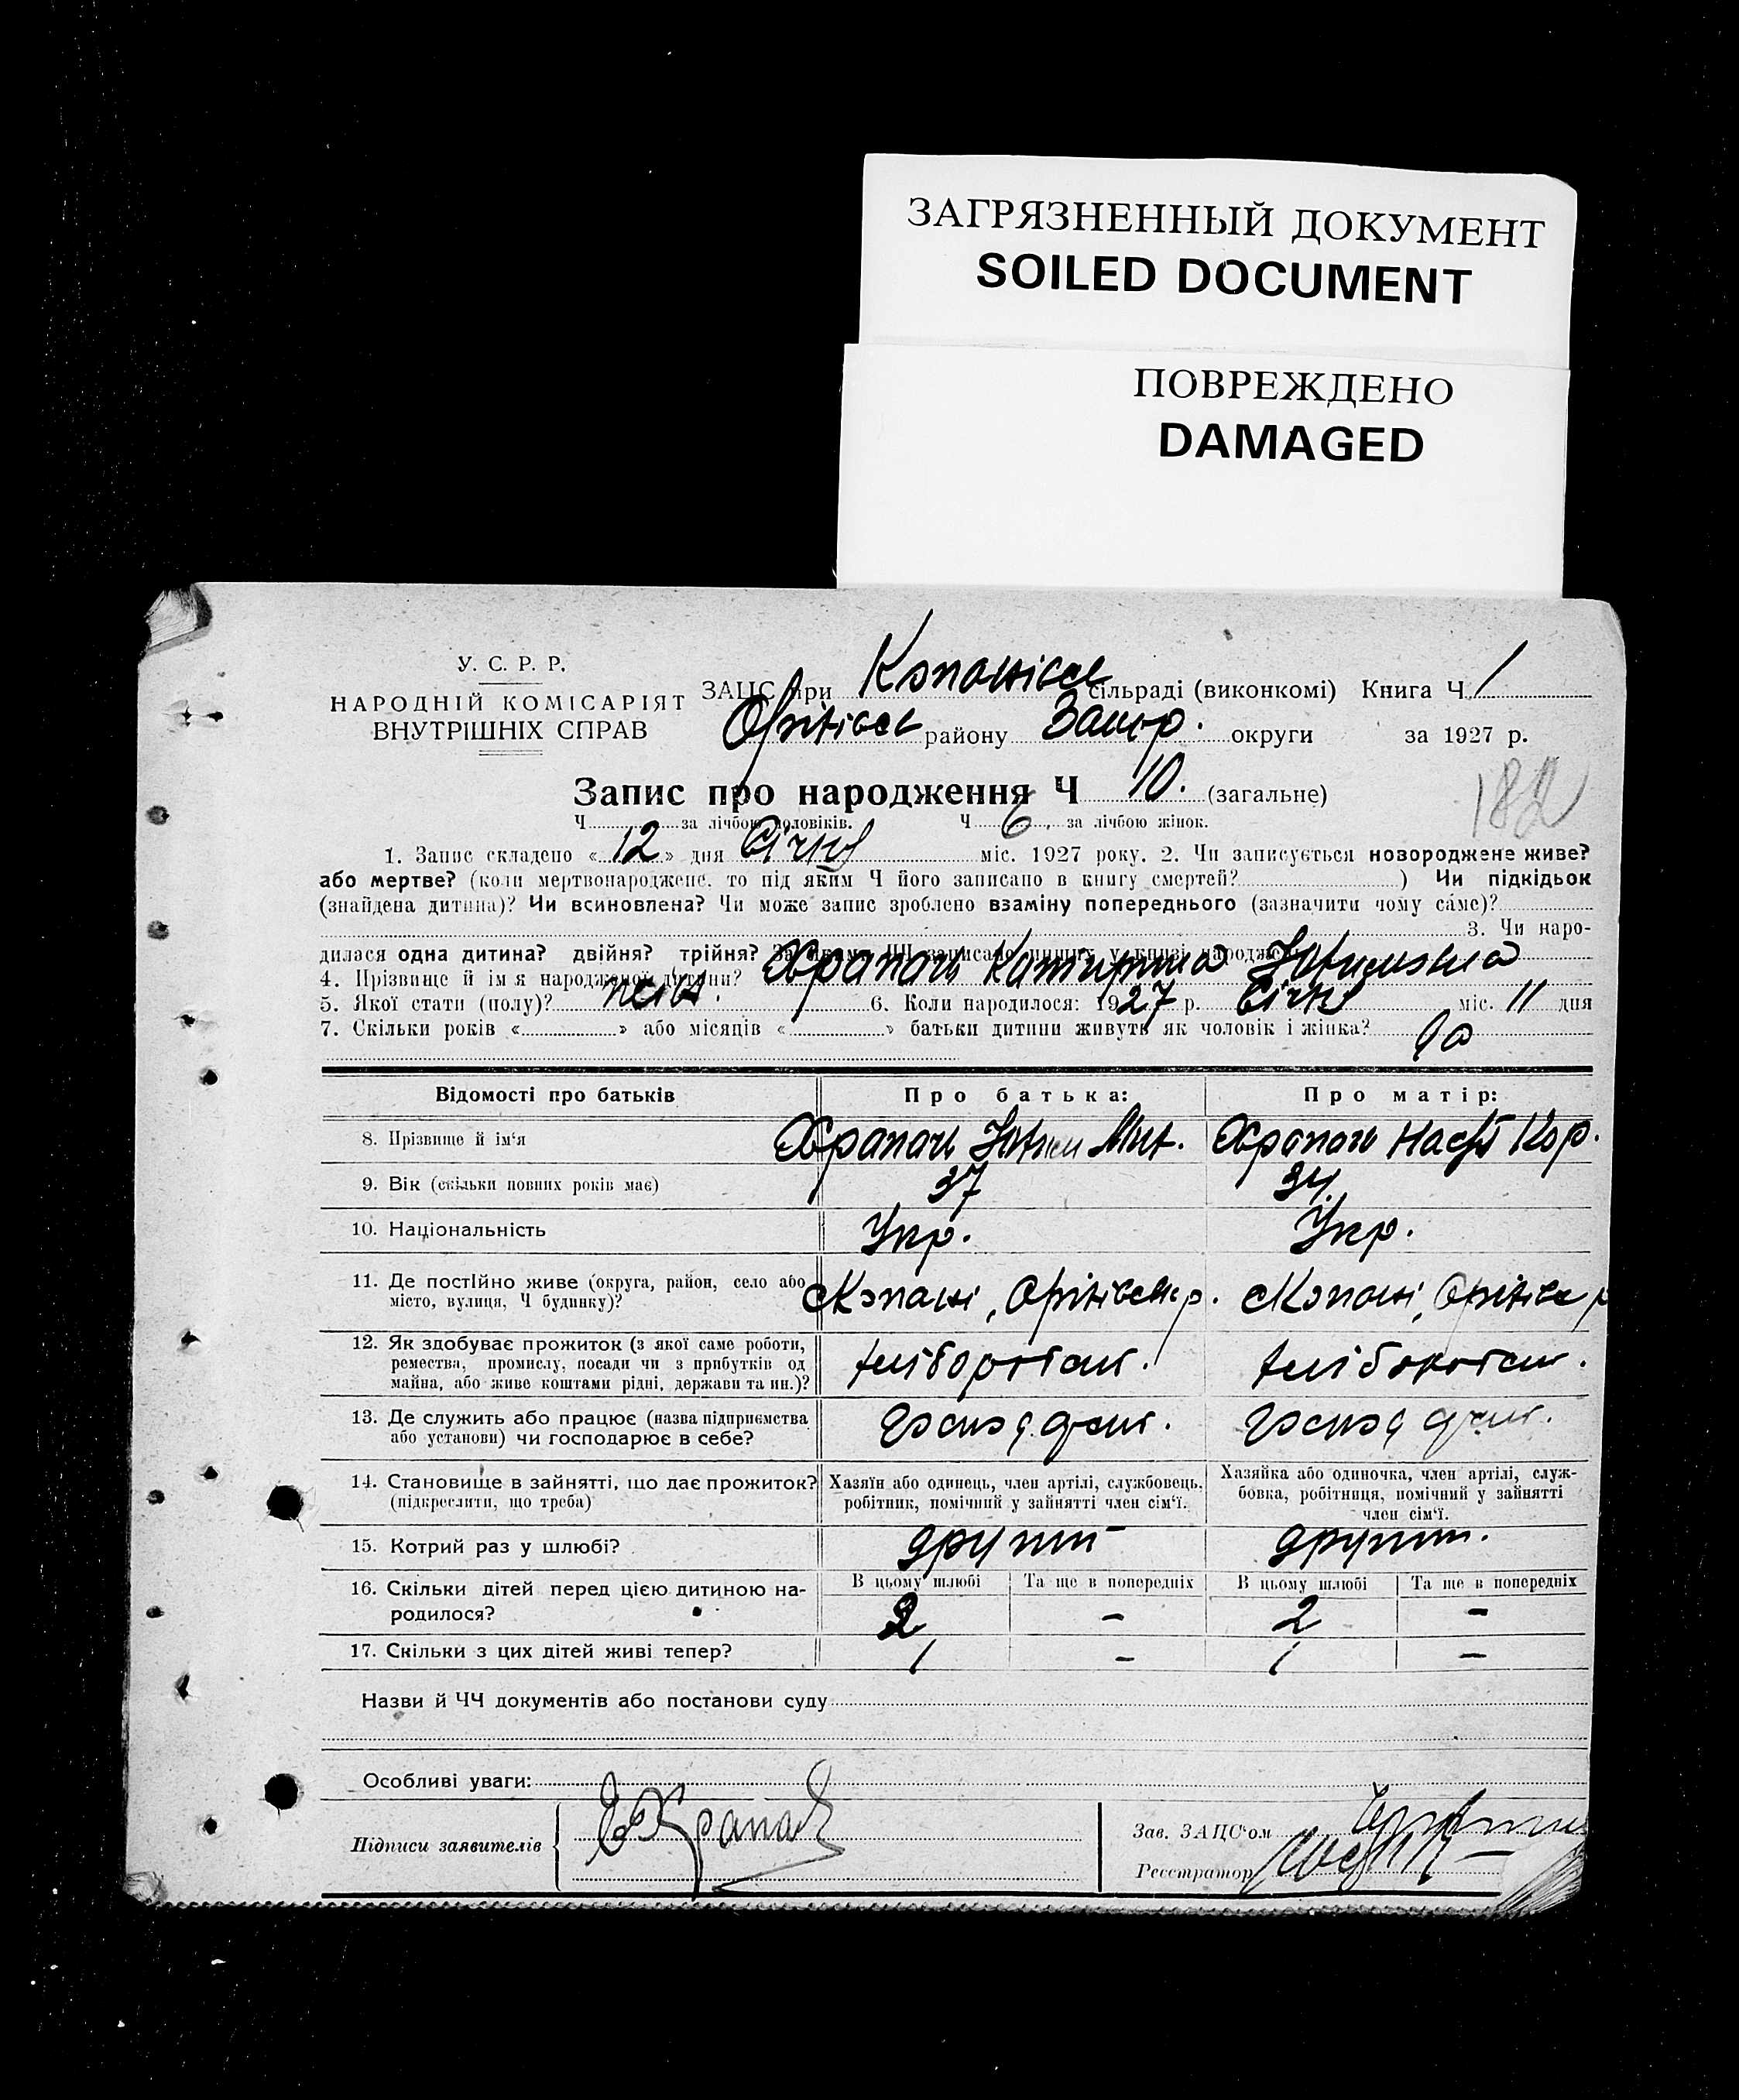 ЗАГРЯЗНЕННЫЙ ДОКУМЕНТ
SOILED DOCUMENT
ПОВРЕЖДЕНО
DAMAGED
У. С. Р. Р.
НАРОДНІЙ КОМІСАРІЯТ
ВНУТРІШНІХ СПРАВ
ЗАЦС при Копанівск сільраді (виконкомі) Книга Ч. 1
Оріхівск району Запор. округи за 1927 р.
Запис про народження Ч 10. (загальне)
182
Ч. за лічбою чоловіків. Ч. 6. за лічбою жінок.
1. Запис складено « 12 » дня Січня міс. 1927 року. 2. Чи записується новороджене живе?
або мертве? (коли мертвонароджене, то під яким Ч його записано в книгу смертей? ) Чи підкідьок
(знайдена дитина)? Чи всиновлена? Чи може запис зроблено взаміну попереднього (зазначити чому са́ме)?
3. Чи наро-
дилася одна дитина? двійня? трійня? За якими ЧЧ записано инших у книзі народжень
4. Прізвище й ім'я народженої дитини? Храпач Катирина
5. Якої стати (полу)? 6. Коли народилося: 1927 р. Січня міс. 11 дня
7. Скільки років « » або місяців « » батьки дитини живуть як чоловік і жінка?
Відомості про батьків Про батька: Про матір:
8. Прізвище й ім'я Храпач Храпач Наст Кор.
9. Вік (скільки повних років має) 37 34.
10. Національність Укр. Укр.
11. Де постійно живе (округа, район, село або
місто, вулиця, Ч будинку)? с Копані, Оріхівск р. с Копані, Оріхівск р
12. Як здобуває прожиток (з якої саме роботи,
ремества, промислу, посади чи з прибутків од
майна, або живе коштами рідні, держави та ин.)? хліборобст. хліборобст.
13. Де служить або працює (назва підприємства
або установи) чи господарює в себе?
14. Становище в зайнятті, що дає прожиток?
(підкреслити, що треба)
Хазяїн або одинець, член артілі, службовець,
робітник, помічний у зайнятті член сім'ї.
Хазяйка або одиночка, член артілі, служ-
бовка, робітниця, помічний у зайнятті
член сім'ї.
15. Котрий раз у шлюбі?
В цьому шлюбі Та ще в попередніх В цьому шлюбі Та ще в попередніх
16. Скільки дітей перед цією дитиною на-
родилося? 2 – 2 –
17. Скільки з цих дітей живі тепер? 1 – 1 –
Назви й ЧЧ документів або постанови суду
Особливі уваги:
Підписи заявителів
Зав. ЗАЦС'ом
Реєстратор